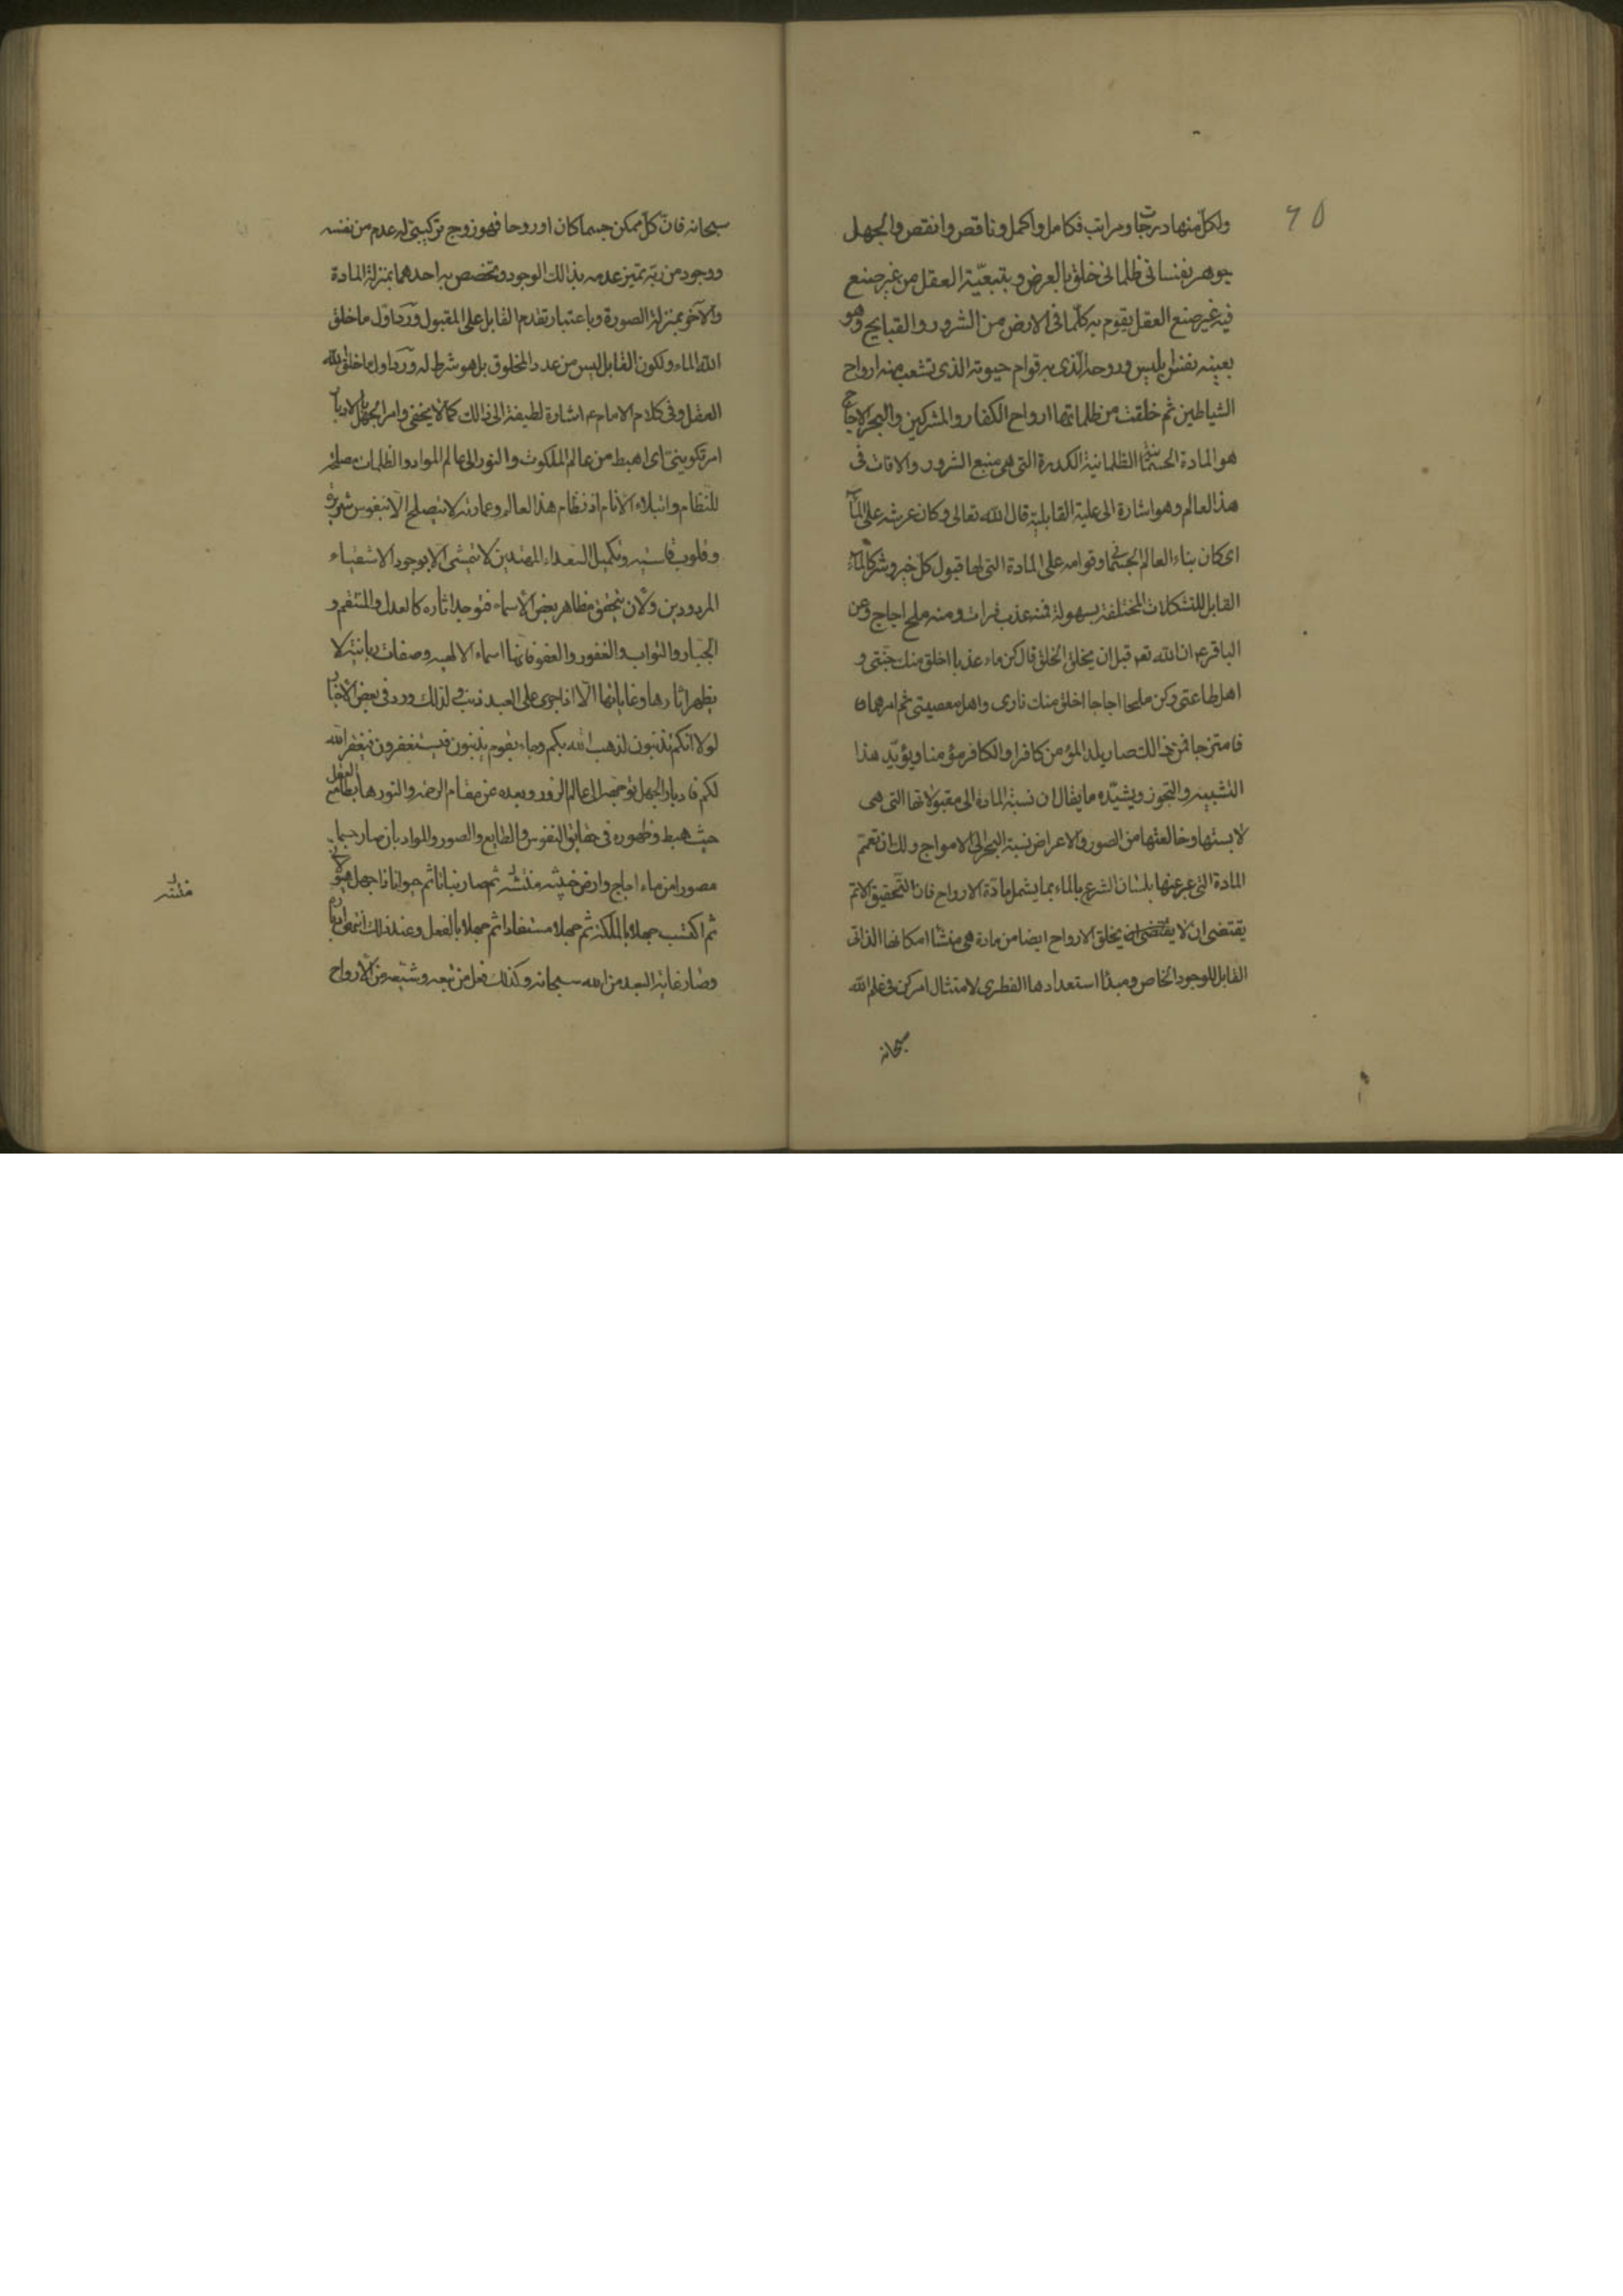 ٦٥
ولكلّ منها درجات ومراتب فكامل واكمل وناقص وانقص والجهل
جوهر نفسانى ظلمانى خلق بالعرض وبتبعيّة العقل من غير صنع
فيه غير صنع العقل يقوم به كلّما فى الارض من الشرور والقبايح وهو
بعينه نفس ابليس وروحه الّذى به قوام حيوته الذى تشعب منه ارواح
الشياطين ثم خلقت من ظلماتها ارواح الكفار والمشركين والبحر الاجاج
هو المادة الجسمانية الظلمانية الكدرة التى هى منبع الشرور والافات فى
هذا العالم وهو اشارة الى علية القابلية قال الله تعالى وكان عرشه على المآء
اى كان بناء العالم الجسمانى وقوامه على المادة التى لها قبول كلّ خير وشر كالمآء
القابل للتشكلات المختلفة بسهولة فمنه عذب فرات ومنه ملح اجاج وعن
الباقر ع ان الله تعه قبل ان يخلق الخلق قال كن ماء عذبا اخلق منك جنّتى و
اهل طاعتى وكن ملحا اجاجا اخلق منك نارى واهل معصيتى ثم امرهما
فامتزجا فمن ذالك صار يلد المؤمن كافرا والكافر مؤمنا ويؤيّد هذا
التشبيه والتجوز ويشيّده ما يقال ان نسبة المادة الى مقبولاتها التى هى
لابستها وخالعتها من الصور والاعراض نسبة البحر الى الامواج ولك ان تعمّم
المادة التى عبر عنها بلسان الشرع بالماء بما يشمل مادّة الارواح فان التحقيق الاتم
يقتضى ان لا يقتضى ان يخلق الارواح ايضا من مادة هى منشأ امكانها الذاتى
القابل للوجود الخاص ومبدأ استعدادها الفطرى لامتثال امر كن فى علم الله
سبحانه
سبحانه فانّ كلّ ممكن جسما كان او روحا فهو زوج تركيبىّ له عدم من نفسه
ووجود من ربّه تميز عدمه بذالك الوجود وتخصص به احدهما بمنزلة المادة
والآخر بمنزلة الصورة وباعتبار تقدم القابل على المقبول ورد اوّل ما خلق
الله الماء ولكون القابل ليس من عدد المخلوق بل هو شرط له ورد اول ما خلق الله
العقل وفى كلام الامام ع اشارة لطيفة الى ذالك كما لا يخفى وامر الجهل بالادبار
امر تكوينىّ اى اهبط من عالم الملكوت والنور الى عالم المواد والظلمات مصلحة
للنظام وابتلاء للانام اذ نظام هذا العالم وعمارته لا يصلح الا بنفوس شريرة
وقلوب قاسيه وتكميل السعداء المهتدين لا يتمشى الا بوجود الاشقياء
المردودين ولان يتحقق مظاهر بعض الاسماء فتوجد اثاره كالعدل والمنتقم و
الجبار والتواب والغفور والعفو فانها اسماء الالهيه وصفات ربانية لا
يظهر اثارها وغاياتها الّا اذا جرى على العبد ذنب ولذلك ورد فى بعض الاخبار
لولا انكم تذنبون لذهب الله بكم وجاء بقوم يذنبون فيستغفرون فيغفر الله
لكم فادبار الجهل توجهه الى عالم الزور وبعده عن مقام الرحمه والنور هابطا مع العقل
حيث هبط وظهوره فى حقايق النفوس والطبايع والصور والمواد بان صار جسما
مصورا من ماء اجاج وارض خبيثه منتنه ثم صار نباتا ثم حيوانا ذا جهل هيولانى
ثم اكتسب جهلا بالملكة ثم جهلا مستفادا ثم جهلا بالفعل وعند ذلك انتهى ادباره
وصار غاية البعد من الله سبحانه وكذلك فعل من تبعه وشيّعه من الارواح